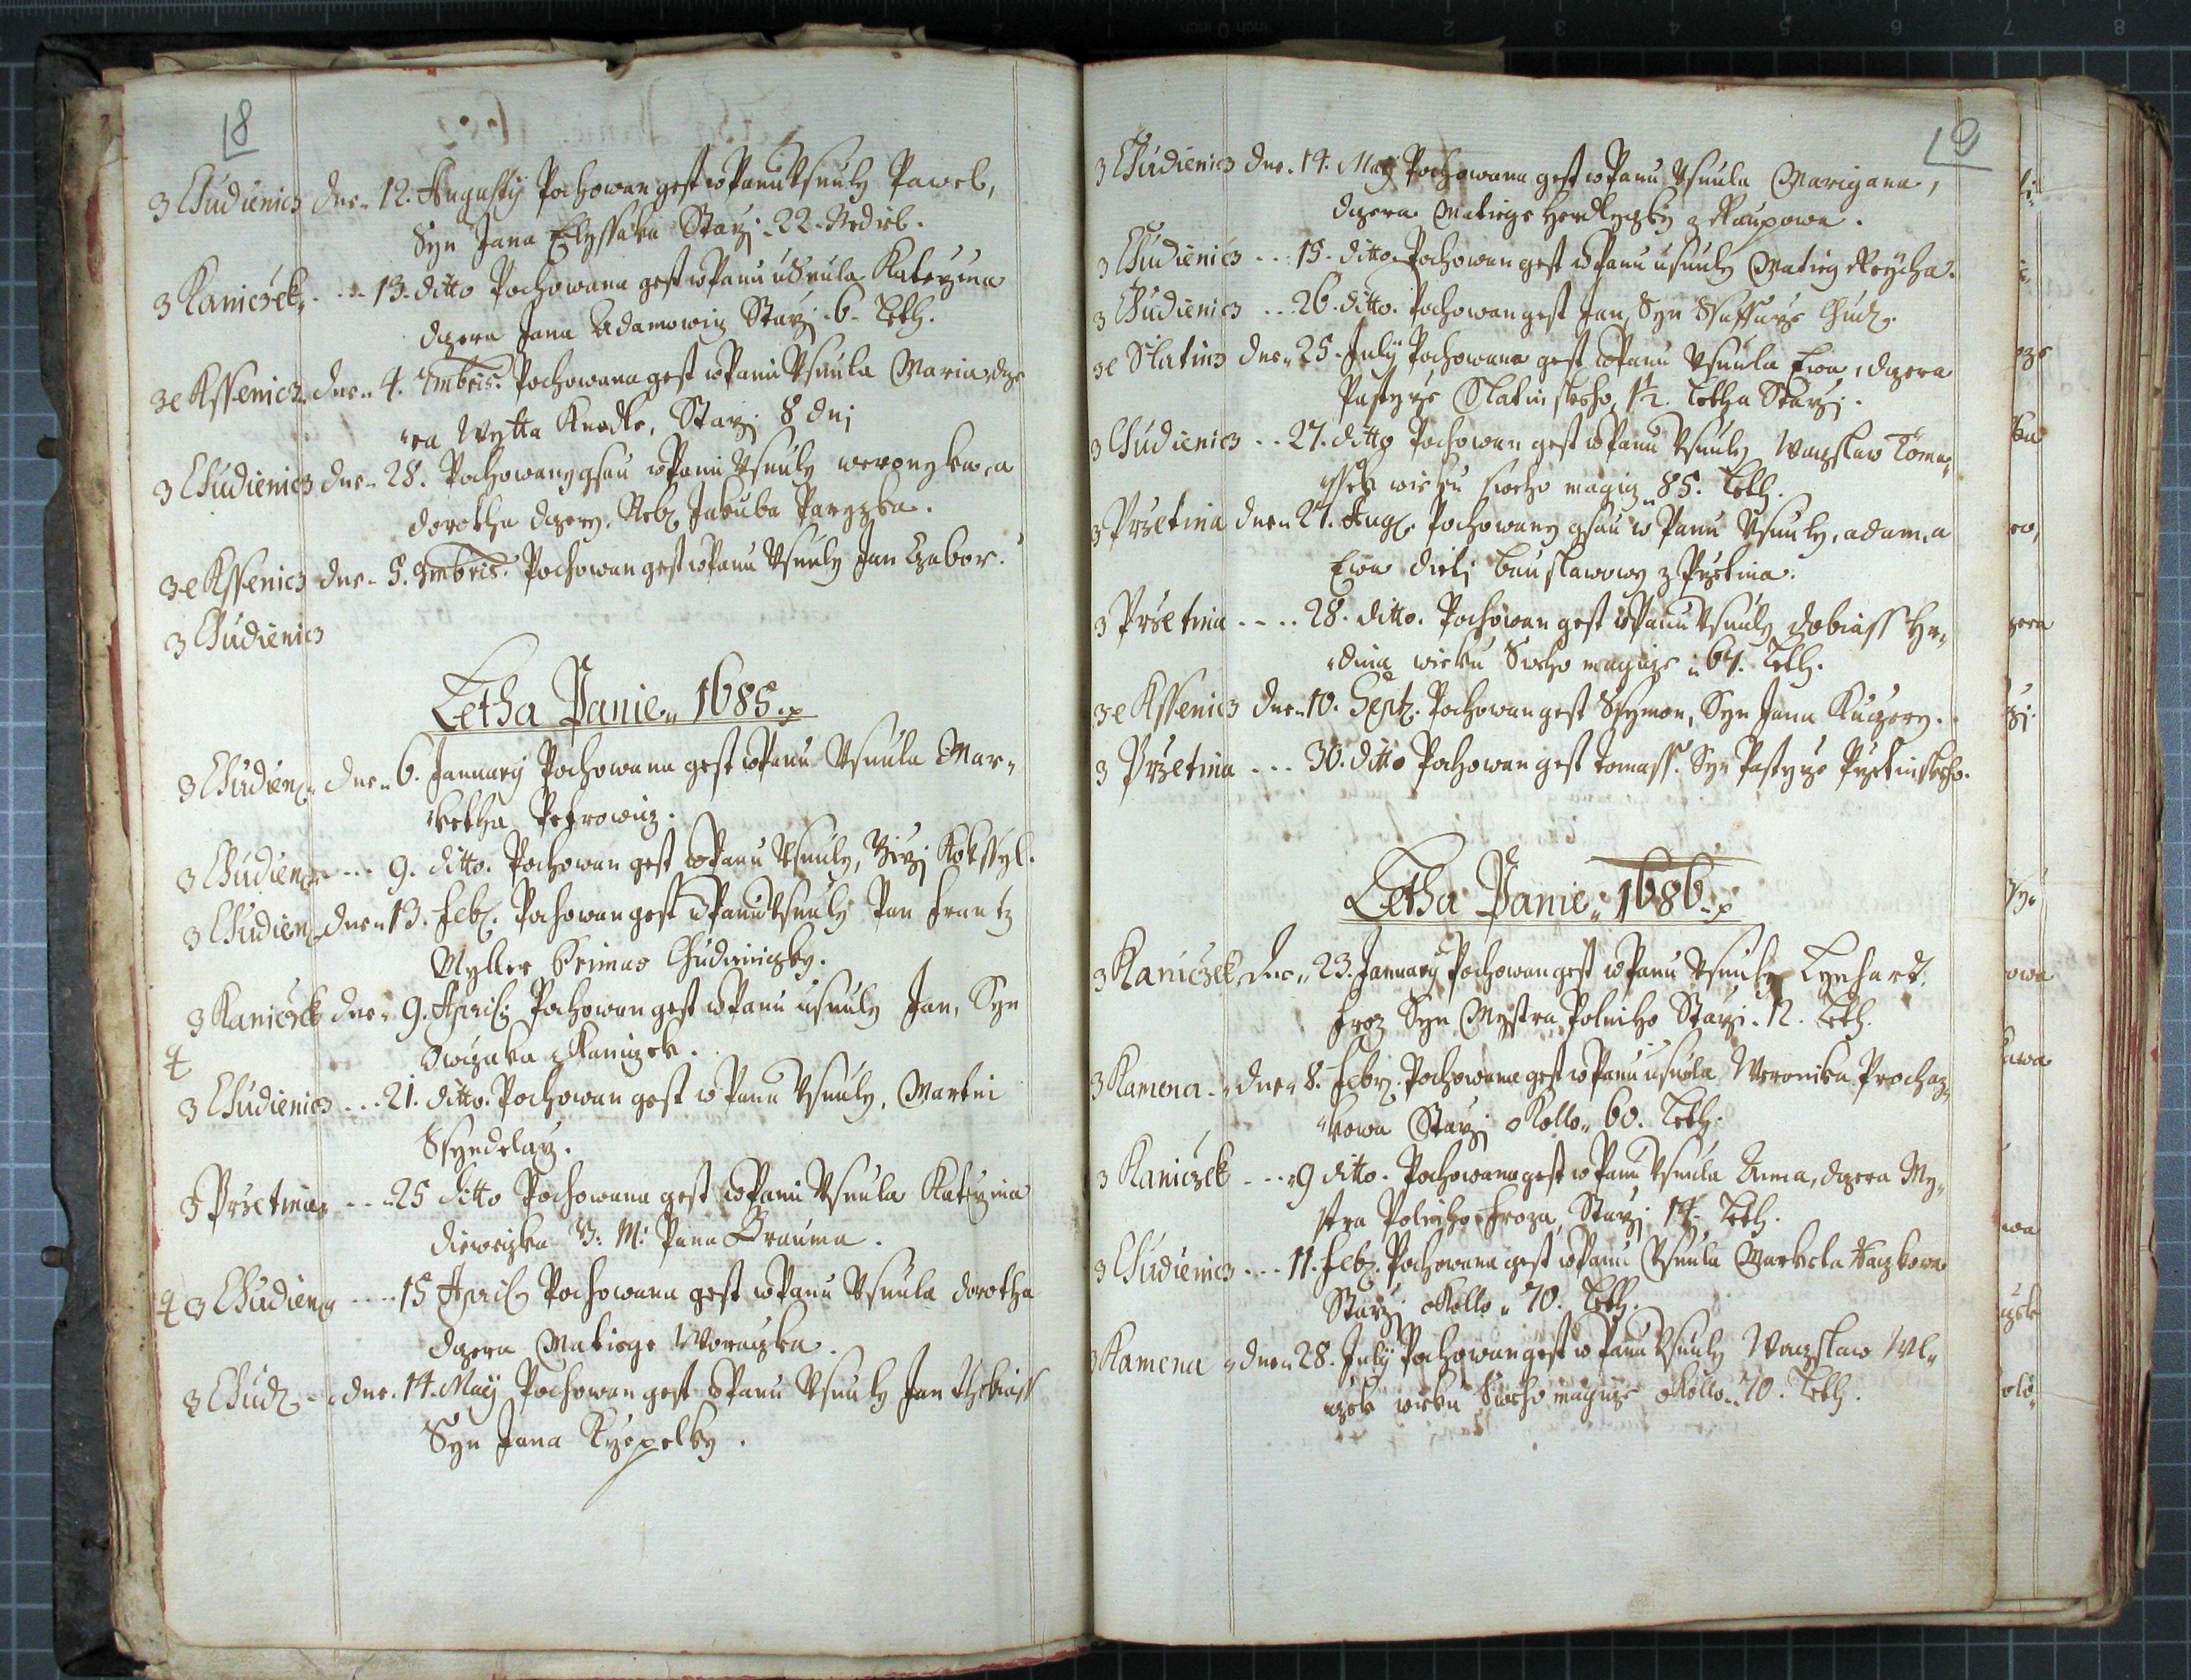 18
z Chudienicz dne 12. Augusty Pochowan gest w Panu Vsnuly Pawel,
Syn Jana Elyssaka Starzj 22. Nediel.
z Kaniczek, ... 13. ditto Pochowana gest w Panu uSnula Katerzina
dczera Jana Adamowicz Starzj. 6. Leth.
ze Kssenicz dne 4. 7mbris. Pochowana gest w Panu Vsnula Maria, dcze
ra Wytta Knedle, Starzj 8 dnj
z Chudienicz dne 28. Pochowany gsau w Panu Vsnuly weronyka, a
dorotha dczery, Neb. Jakuba Pargzka.
ze Kssenicz dne 5. 9mbris. Pochowan gest w Panu Vsnuly Jan Czabor.
z Chudienicz
Letha Panie 1685.
z Chudien. dne 6. January Pochowana gest w Panu Vsnula Mar
ketha Petrowicz.
z Chudien. ... 9. ditto. Pochowan gest w Panu Vsnuly, Girzj Kokssyl.
z Chudien. dne 13. Feb. Pochowan gest w Panu Vsnuly Pan Frantz
Myller Primas Chudieniczky.
z Kaniczek dne 9. April. Pochowan gest w Panu usnuly Jan, Syn
Owczaka z Kaniczek.
z Chudienicz ... 21. ditto. Pochowan gest w Panu Vsnuly, Martin
Ssyndelarz.
z Przetina ... 25 ditto Pochowana gest w Panu Vsnula Katerzina
dieweczka V: M: Pana Brauma.
z Chudien. ... 15 April. Pochowana gest w Panu Vsnula dorotha
dczera Matiege Woraczka.
z Chud. dne 14. May Pochowan gest w Panu Vsnuly Jan
Syn Jana Kyspelky.
19
z Chudienicz dne 14. May Pochowana gest w Panu Vsnula Marigana,
dczera Matiege z Raupowa.
z Chudienicz ... 15. ditto. Pochowan gest w Panu usnuly Matieg Reycha.
z Chudienicz ... 26. ditto. Pochowan gest Jan, Syn Ssaffarze Chud.
ze Slatinz dne 25. July Pochowana gest w Panu Vsnula Ewa, dczera
Pastyrze Slatinskeho, 1½. Letha Starzj.
z Chudienicz ... 27. ditto Pochowan gest w Panu Vsnuly Waczslaw Toma
ssek wieku sweho magicz 85. Leth.
z Przetina dne 27. Aug. Pochowany gsau w Panu Vsnuly, adam, a
Ewa dietj Bauslawowy z Przetina.
z Przetina .... 28. ditto. Pochowan gest w Panu Vsnuly Dobiass Hr
dina wieku Sweho magicze 67. Leth.
ze Kssenicz dne 10. Sept. Pochowan gest Ssymon, Syn Jana Kuczery.
z Przetina ... 30. ditto Pochowan gest Tomass. Syn Pastyrze Przetinskeho.
Letha Panie 1686.
z Kaniczek dne 23. January Pochowan gest w Panu Vsnuly Lynhard.
Froz Syn Mystra Polniho Starzi. 12. Leth.
z Kamena dne 8. Feb. Pochowana gest w Panu usnula Weronika Prochaz
kowa Starzj okollo 60. Leth.
z Kaniczek ... 9 ditto. Pochowana gest w Panu Vsnula Anna, dczera My
stra Polniho Froza, Starzj 14. Leth.
z Chudienicz ... 11. Feb. Pochowana gest w Panu Vsnula Marketa Haczkowa
Starzj okollo 70. Leth.
z Kamena dne 28. July Pochowan gest w Panu Vsnuly Waczslaw Wl
czek wieku Sweho magicze okollo 70. Leth.